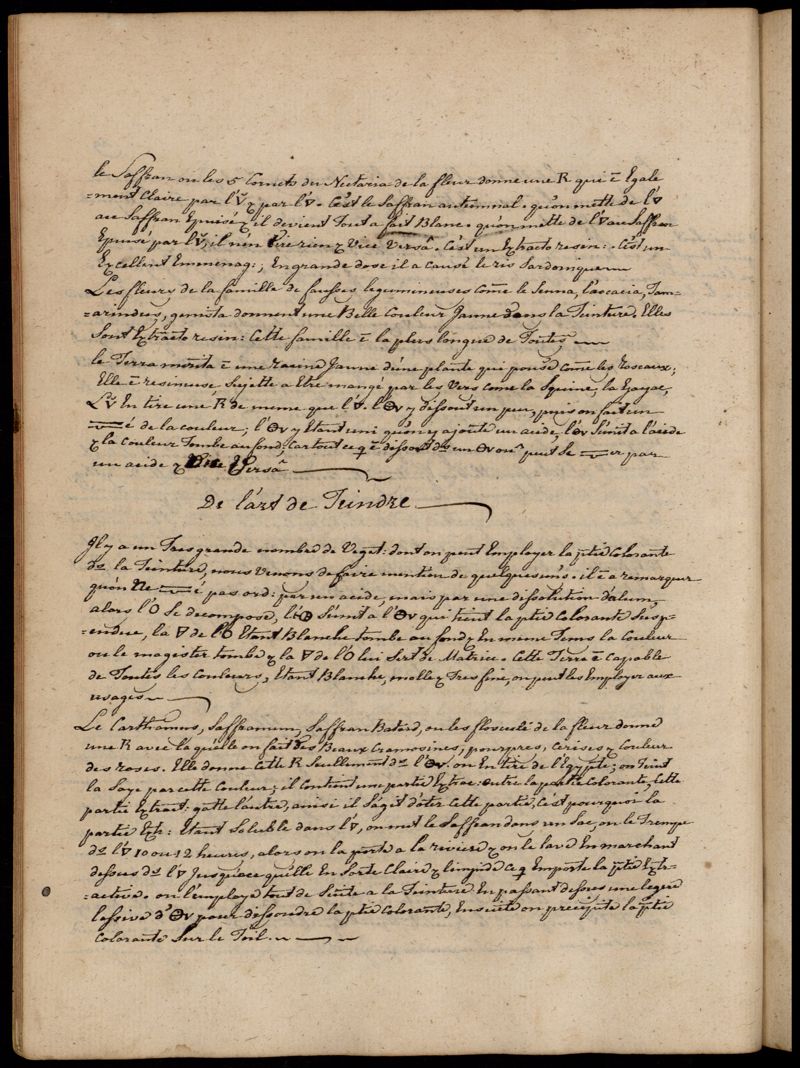 le Saffran ou les 5 Cornets du Nectaria de la fleur donne une R qui ē Egale
=ment Claire par l'V̈ & par l'🜄. C'est le Saffran autumnal. qu'on mette de l'🜄
au Saffran Epuisé &, il devient Tout a fait Blanc. qu'on mette de l'🜄 au Saffran
Epuisé par l'V̈, il n'en tire rien & Vice Versâ. C'est un Extracto resin:. C'est un
Excellent Emenenag:; En grande dose il a causé le ris Sardonique
Les fleurs de la famille de fausses legumineuses come le Senna, l'accacia, Tam-
=arindus, genista donnent une Belle Couleur Jaune dans la Teinture. Elles
Sont Extracto resin: Cette famille ē la plus longue de Toutes
le Terra merita ē une racine Jaune d'une plante qui pousse come les roseaux;
Elle ē resineuse Sujette a Etre mangé par les Vers come la Squine, la Gayac,
L'V̈ En tire une R de meme que l'🜄. l'🜔v y dissout un peu, puis on fait un
é de la couleur; l'🜔v y Etant uni qu'on y ajoute un acide, l'🜔v S'unit a l'acide
& la couleur Tombe au fond; Car tout ce q ē dissout ds un 🜔v peut Se er par
un acide & Vice Versâ
De l'art de Teindre
Il y a un Tres grande nombre de Veget: dont on peut Employer la ptie Colorante
ds la Teinture, nous Venons de faire mention de quelques uns. il ē a remarquer
qu'on Ne é pas ord: par un acide, mais par une dissolution d'alum,
alors l'O Se decompose, l' S'unit a l'🜔v qui tient la ptie Colorante Susp-
=endue, la 🜃 de l'O Etant Blanche tombe au fond & En meme Tems la Couleur
ou le magister tombe & la 🜃 de l'O lui Sert de Matrice. Cette Terre ē Capable
de Toutes les Couleurs, Etant Blanche, molle & Tres fine, on peut les Employer aux
usages
Le Carthamus, Saffranum, Saffran Batard, ou les flosculé de la fleur donne
une R avec la quelle on fait des Beaux Cramosines, pourpres, Cerises & Couleur
des roses. Elle donne Cette R Seullement ds l'🜔v. on En tire de l'Egypte; on Teint
la Soye par cette Couleur; il Contient une partie Extrac: outre la partie Colorante, Cette
partie Extract: gatte l'autre, ainsi il S'agit d'oter Cette partie, C'est pourquoi la
partie Extr: Etant Soluble dans l'🜄, on met le Saffran dans un Sac, on le Trempe
ds l'🜄 10 ou 12 heures, alors on la porte a la riviere & on le lave En marchant
dessus ds l'🜄 Jusqu'a ce qu'elle En Sorte Claire & limpide ce q Emporte la ptie Extr-
=active. on l'employe tout de Suite a la Teinture En passant dessus une legere
lessive d'🜔v pour dissoudre la ptie Colorante, Ensuite on precipite la ptie
Colorante Sur le Toil.